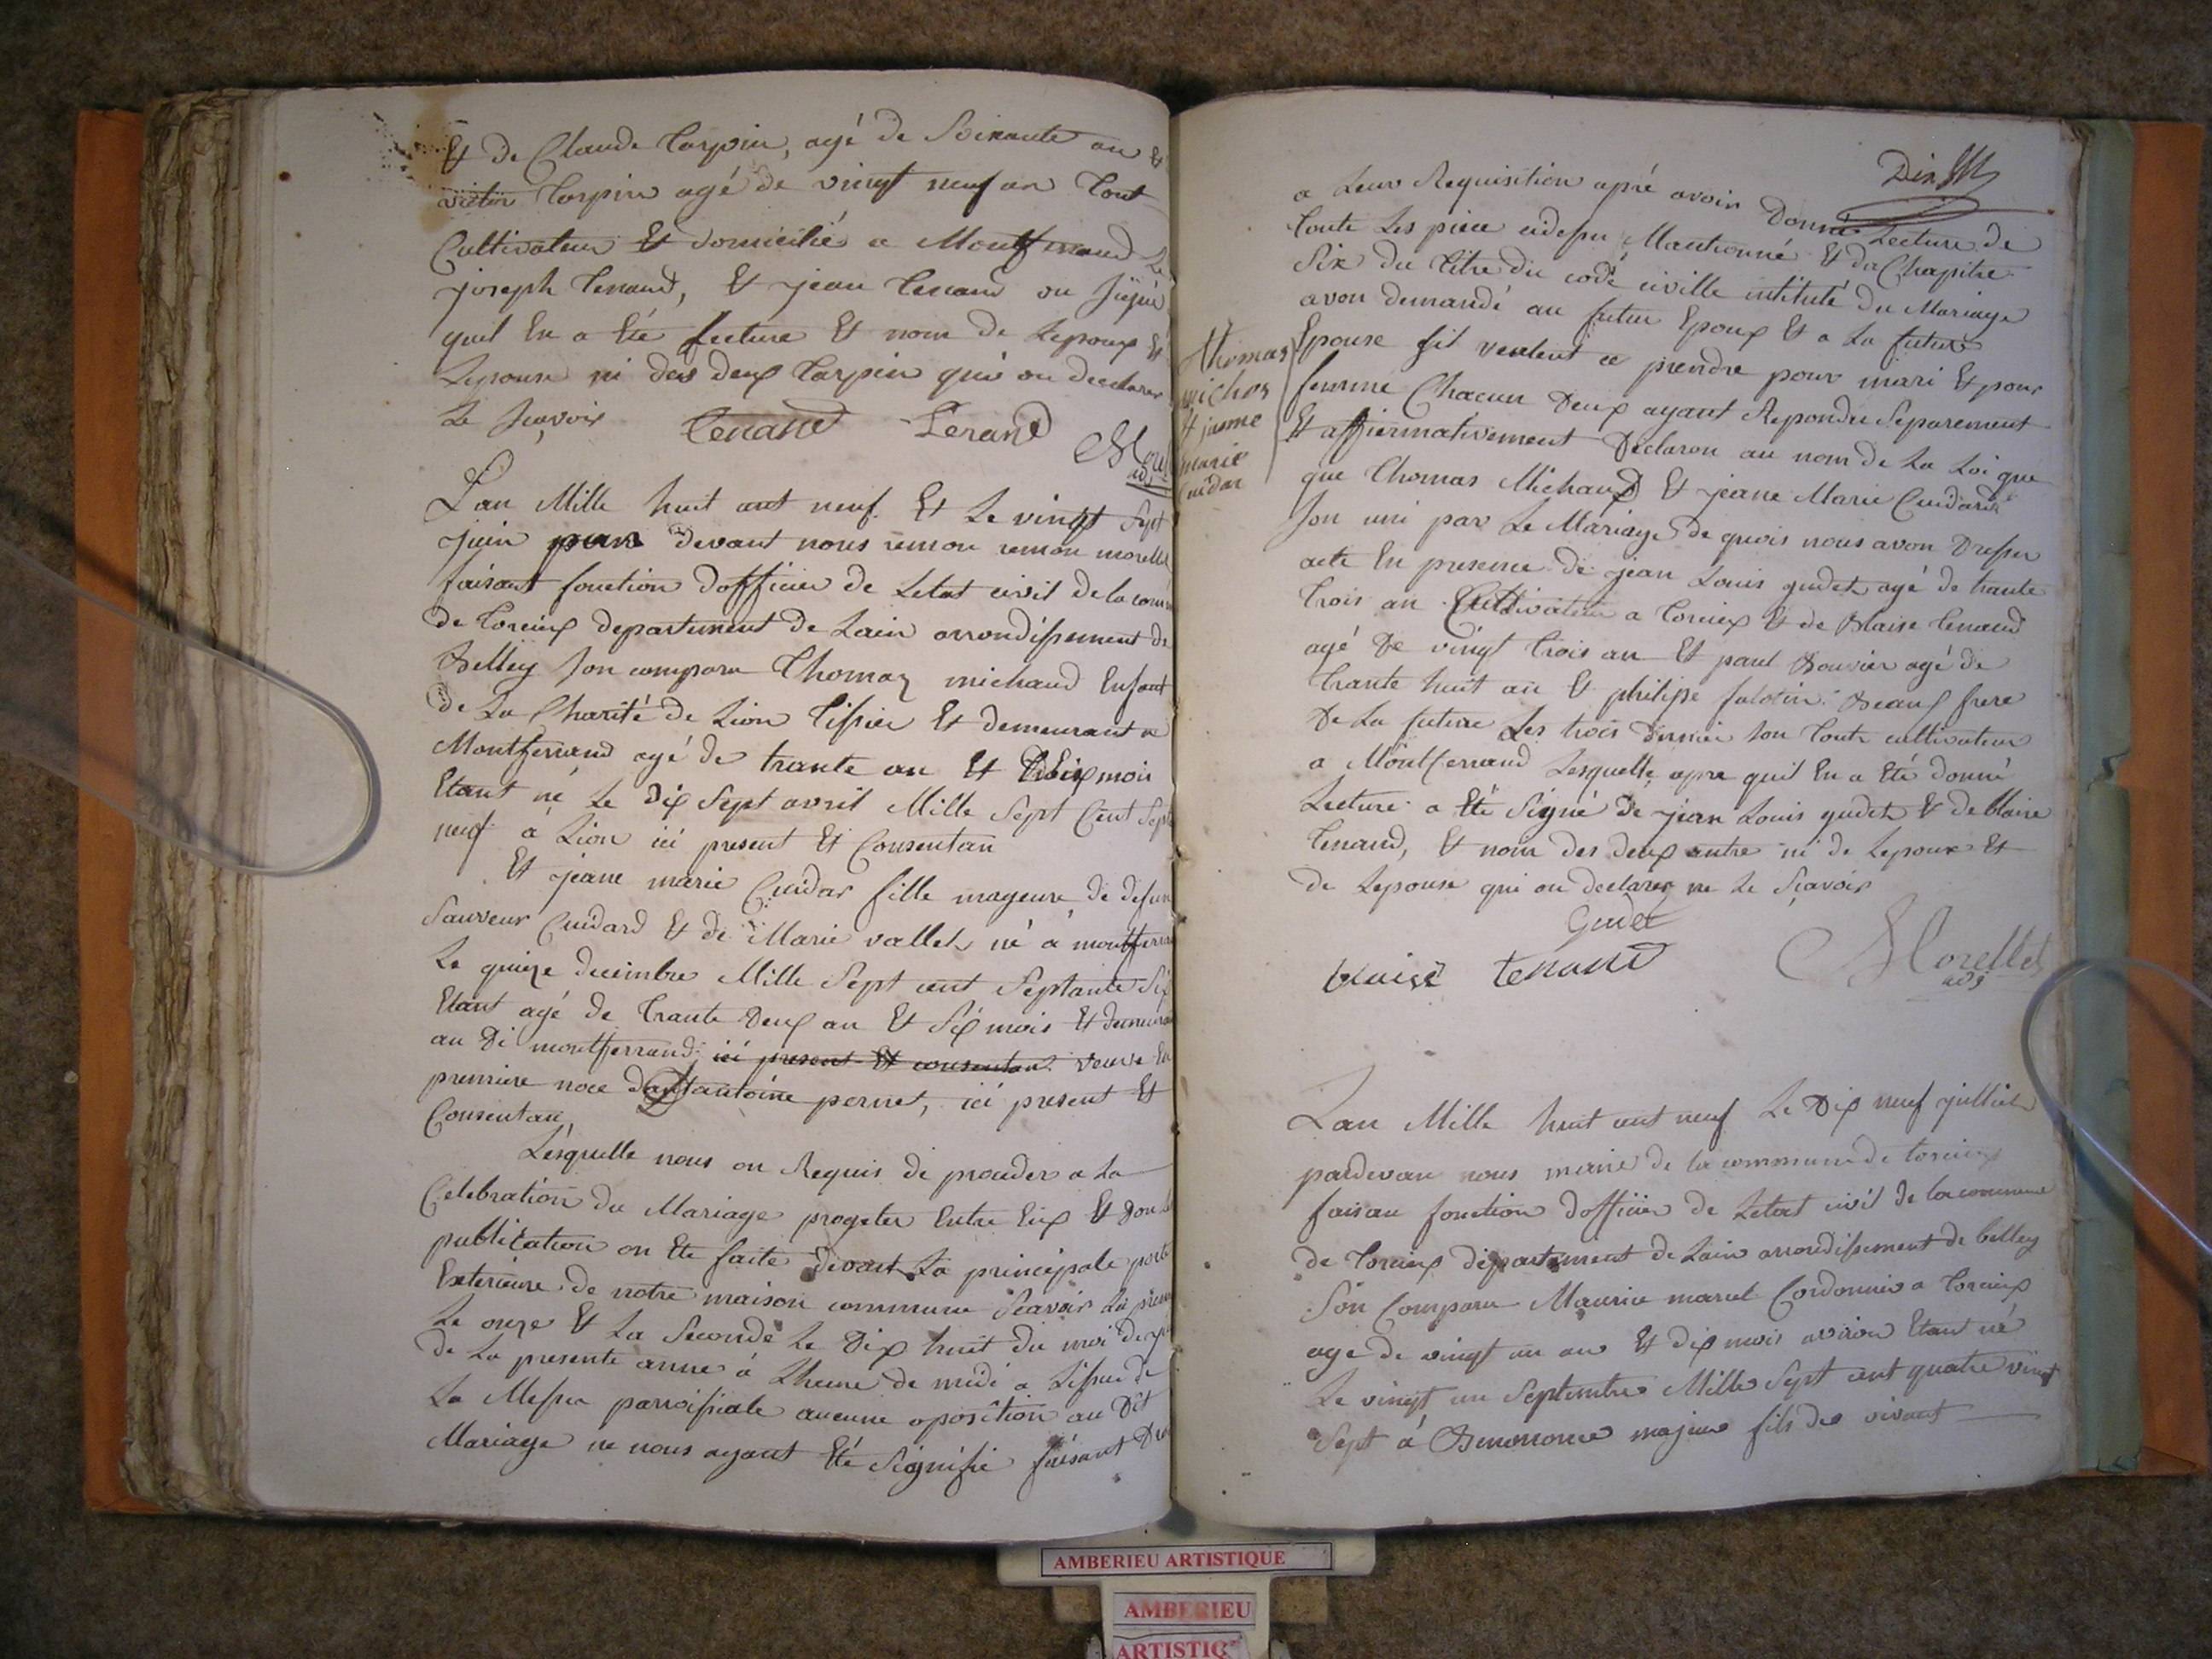 Et de Claude Carpin, agé de Soixante an et
victor Carpin agé de vingt neuf an tout
Cultivateur Et domicilié a Montferrand
joseph tenand, Et jean tenand on Signé
quil En a Eté lecture Et non de Lepoux Et
Lepouse ni des deux Carpin qui on declarer
Le Sçavoir tenand Tenand Morel
adj
Lan Mille huit cent neuf Et Le vingt Sept
juin par devant nous remon remon morellet
faisant fonction dofficier de Letat civil de la com
de torcieux departement de Lain arrondissement de
Belley Son comparu Thomas michaud Enfant
de La Charité de Lion tissier Et demeurant a
Montferrand agé de trante an Et mois
Etant né Le dix Sept avril Mille Sept Cent Sept
neuf a Lion ici present Et Consentan
Et jeane marie Cuidar fille mageure de defun
Sauveur Cuidard Et de Marie vallet né a montferra
Le quinze decimbre Mille Sept cent Septante Six
Etant agé de trante deux an Et Six mois Et demeuran
au di montferrand ici present Et consentan veuve En
premiere noce dantantoine perret, ici present Et
Consentan
Lesquelle nous on Requis de proceder a La
Celebration du Mariage progeter Entre Eux Et don
publication on Ete faite devant La principale porte
Exterieure de notre maison commune Scavoir La prem
Le onze Et La Seconde Le Dix huit du moi de
de La presente anne a Lheure de midi a Lissue de
La Messe parroissiale aucune oposition au Dit
Mariage ne nous ayant Eté Signifié faisant Droi
Dix
a Leur Requisition apré avoir Donné Lecture de
toute Les piece cidesu Mantionné Et du Chapitre
Six du titre du code civille intitulé du Mariage
avon demandé au futur Epoux Et a La future
Epouse Sil veulent ce prendre pour mari Et pour
femme Chacun Deux ayant Repondu Separement
Et affirmativement Declaron au nom de La Loi que
que thomas Michaud Et jeane Marie Cuidard
Son uni par Le Mariage de quois nous avon Dresser
acte En presence de jean Louis gudet agé de trante
trois an Cultivateur a torcieux Et de Blaise tenand
agé De vingt trois an Et paul Bouvier agé de
trante huit an Et philippe falotin Beaux frere
De La future Les trois dernier Son toute cultivateur
a Montferrand Lesquelle apre quil En a Eté donné
Lecture a Eté Signé de jean Louis gudet Et de blaise
tenand, Et nom des deux autre ni de Lepoux Et
de Lepouse qui on declarer ne Le Sçavoir
Gudet
blaise tenand Morellet
adj
thomas
michor
et janne
marie
Cuidar
Lan Mille huit cent neuf Le Dix neuf juillet
pardevan nous maire de la commune de torcieux
faisan fonction dofficier de Letat civil de la commune
de torcieux departement de Lain arrondissement de belley
Son Comparu Maurice marcel Cordonnier a torcieux
age de vingt un an Et dix mois aviron Etant né
Le vingt un Septembre Mille Sept cent quatre vingt
Sept a Benonance majeur fils de vivant
AMBERIEU ARTISTIQUE
AMBERIEU
ARTISTIQ